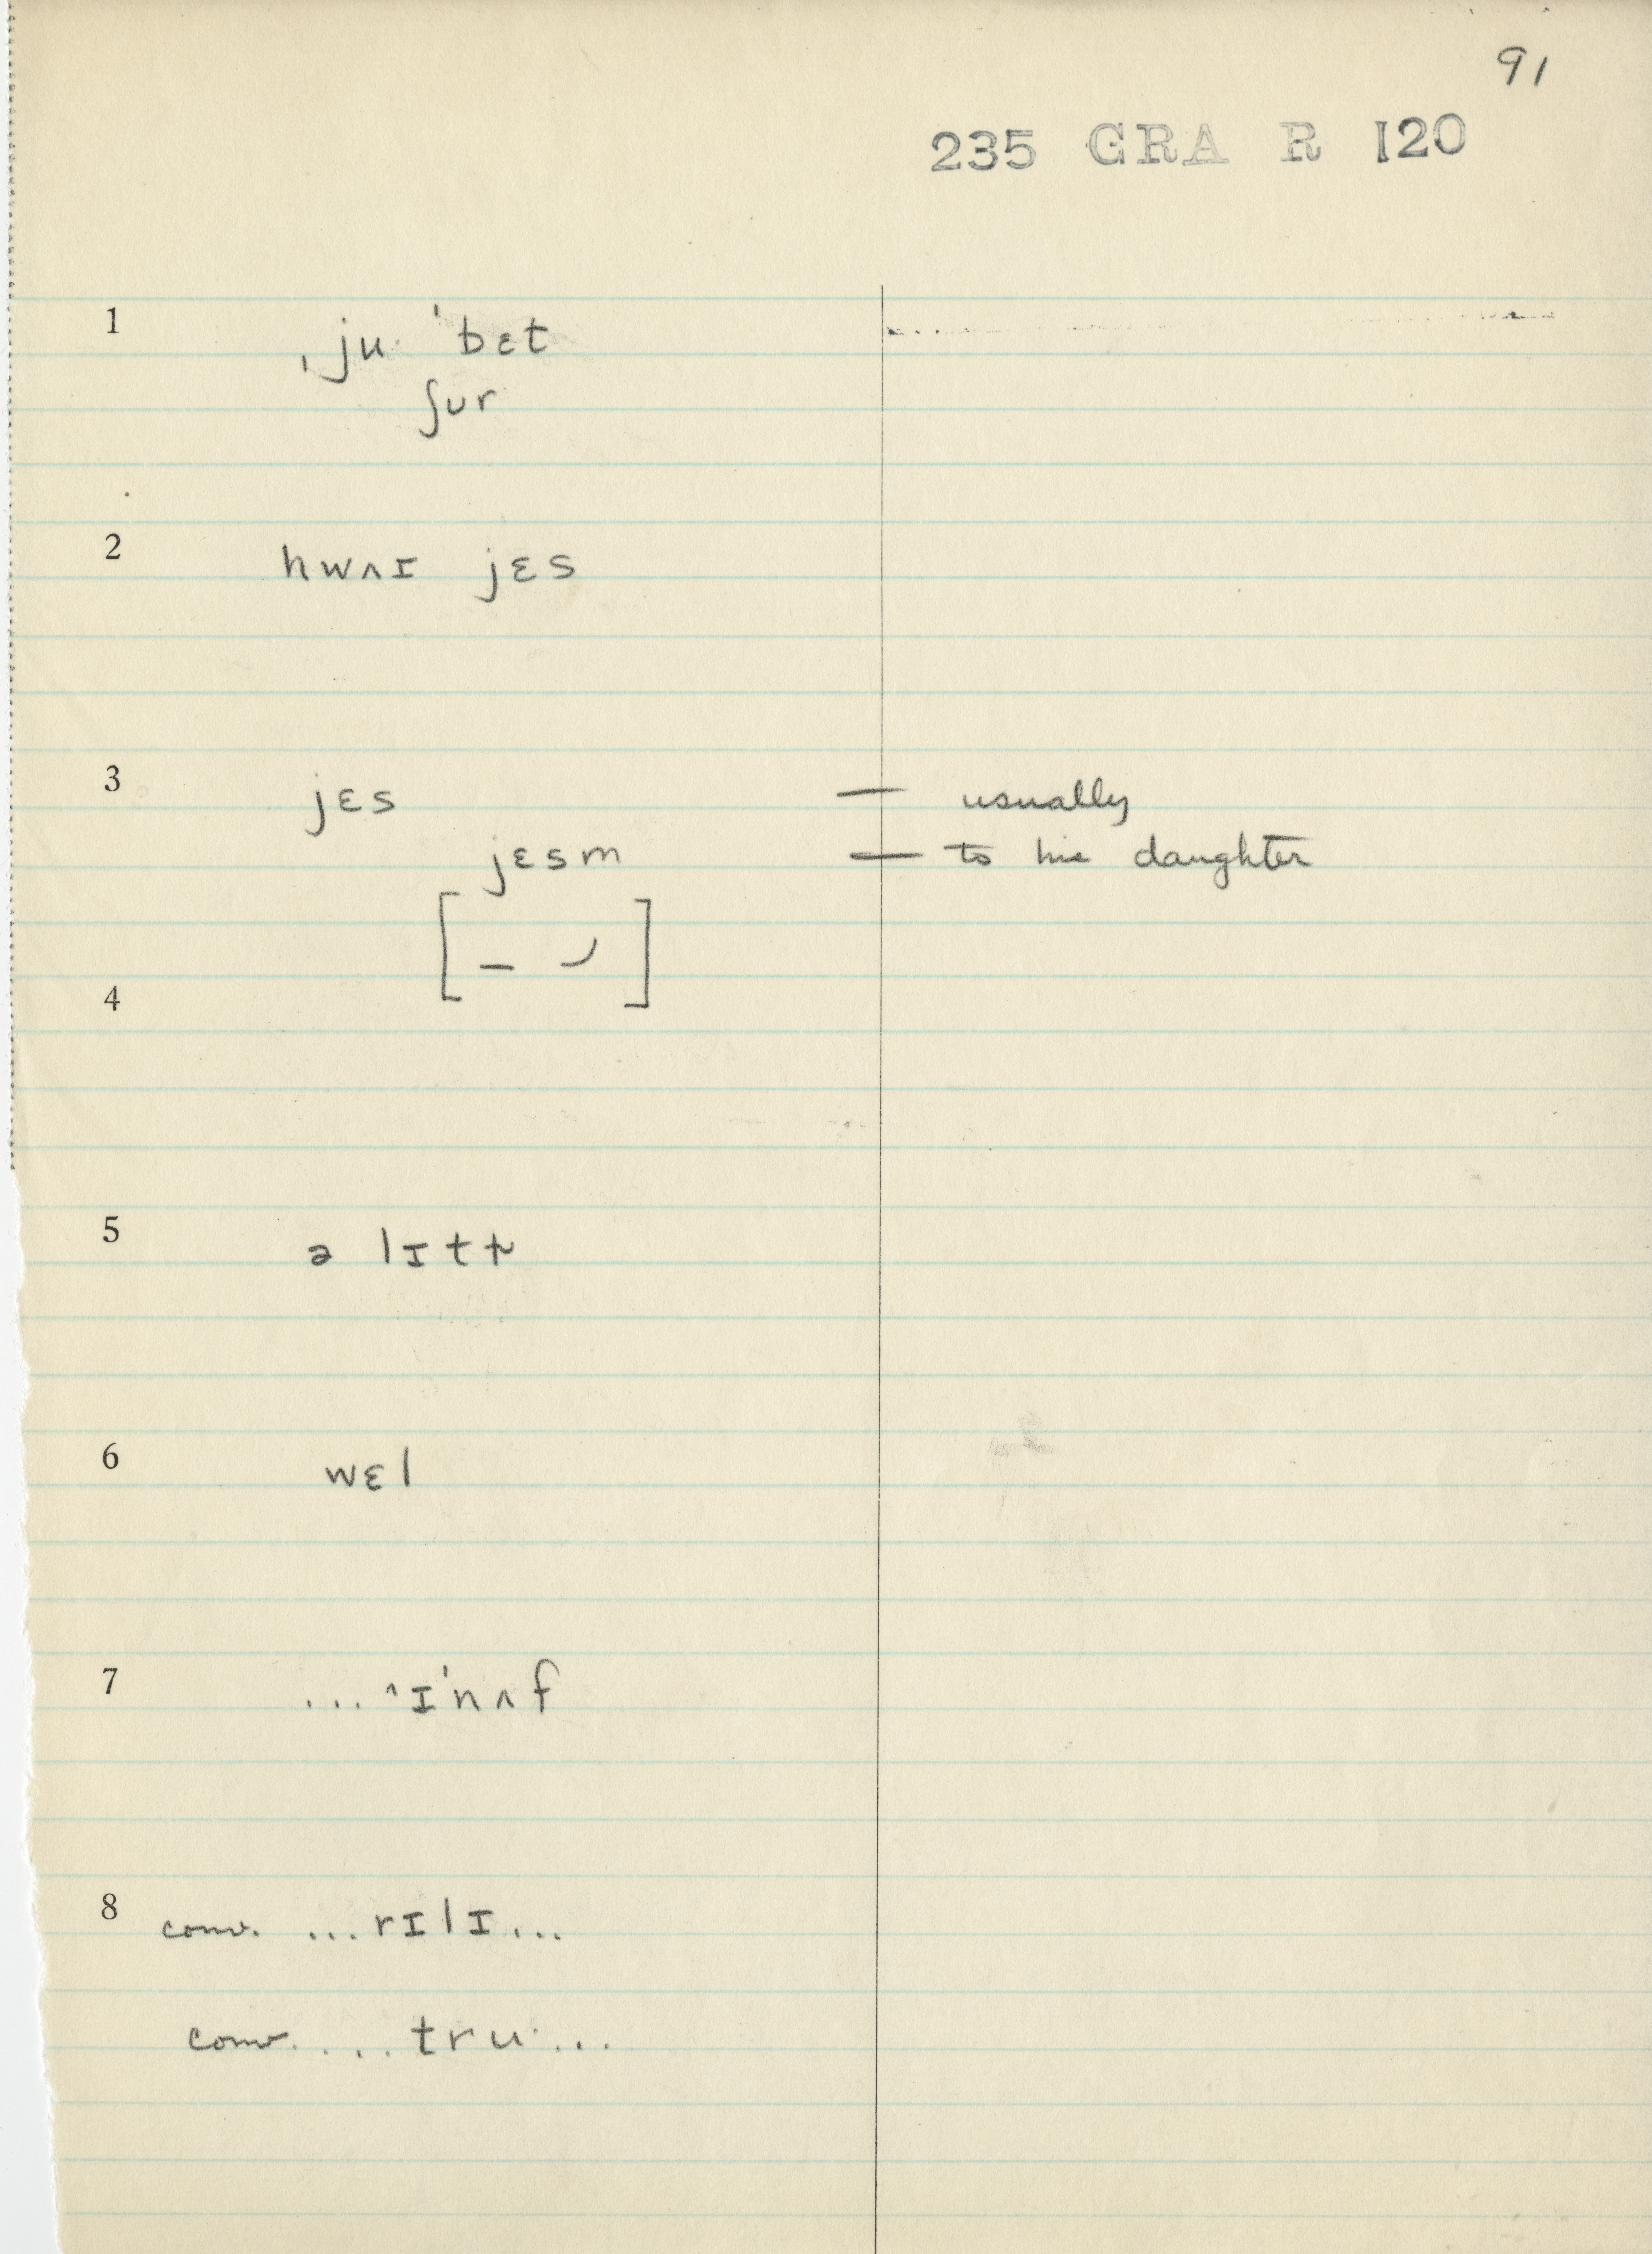 91
235 GRA R 120
1 ˌjuˑ ˈbɛt
ʃʊr
2 hwʌɪ jɛs
3 jɛs — usually
jɛsm — to his daughter
[ – ⌣ ]
4
5 ə lɪtt
6 wɛl
7 ... ^ɪˈnʌf
8 conv. ...rɪlɪ...
conv. ... truˑ...